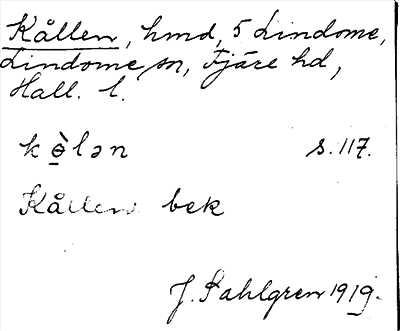 Kållen, hmd, 5 Lindome,
Lindome sn, Fjäre hd,
Hall. l.
k ɵ̀lən s. 117.
Kållen bek
J. Sahlgren 1919.